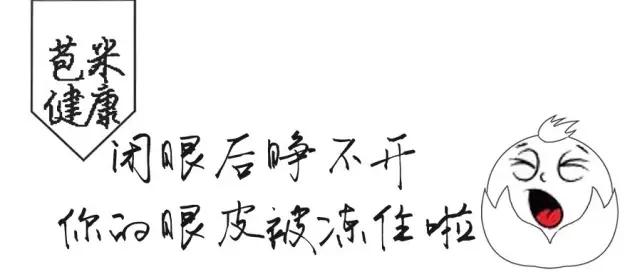 苞米
健康
闭眼后睁不开
你的眼皮被冻住啦